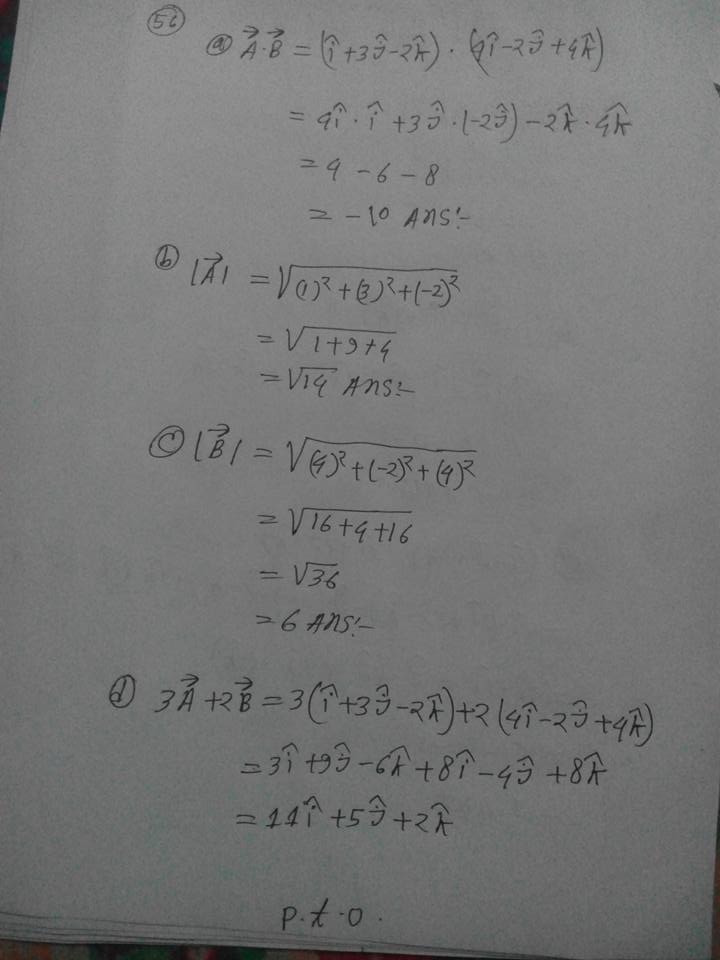 56
ⓐ A⃗·B⃗ = (î+3ĵ-2k̂)·(4î-2ĵ+4k̂)
= 4î·î+3ĵ·(-2ĵ)-2k̂·4k̂
= 4 - 6 - 8
= -10 Ans:-
ⓑ |A⃗| = √(1)²+(3)²+(-2)²
= √1+9+4
= √14 Ans:-
ⓒ |B⃗| = √(4)²+(-2)²+(4)²
= √16+4+16
= √36
= 6 Ans:-
ⓓ 3A⃗+2B⃗ = 3(î+3ĵ-2k̂)+2(4î-2ĵ+4k̂)
= 3î+9ĵ-6k̂+8î-4ĵ+8k̂
= 11î+5ĵ+2k̂
P.t.o.